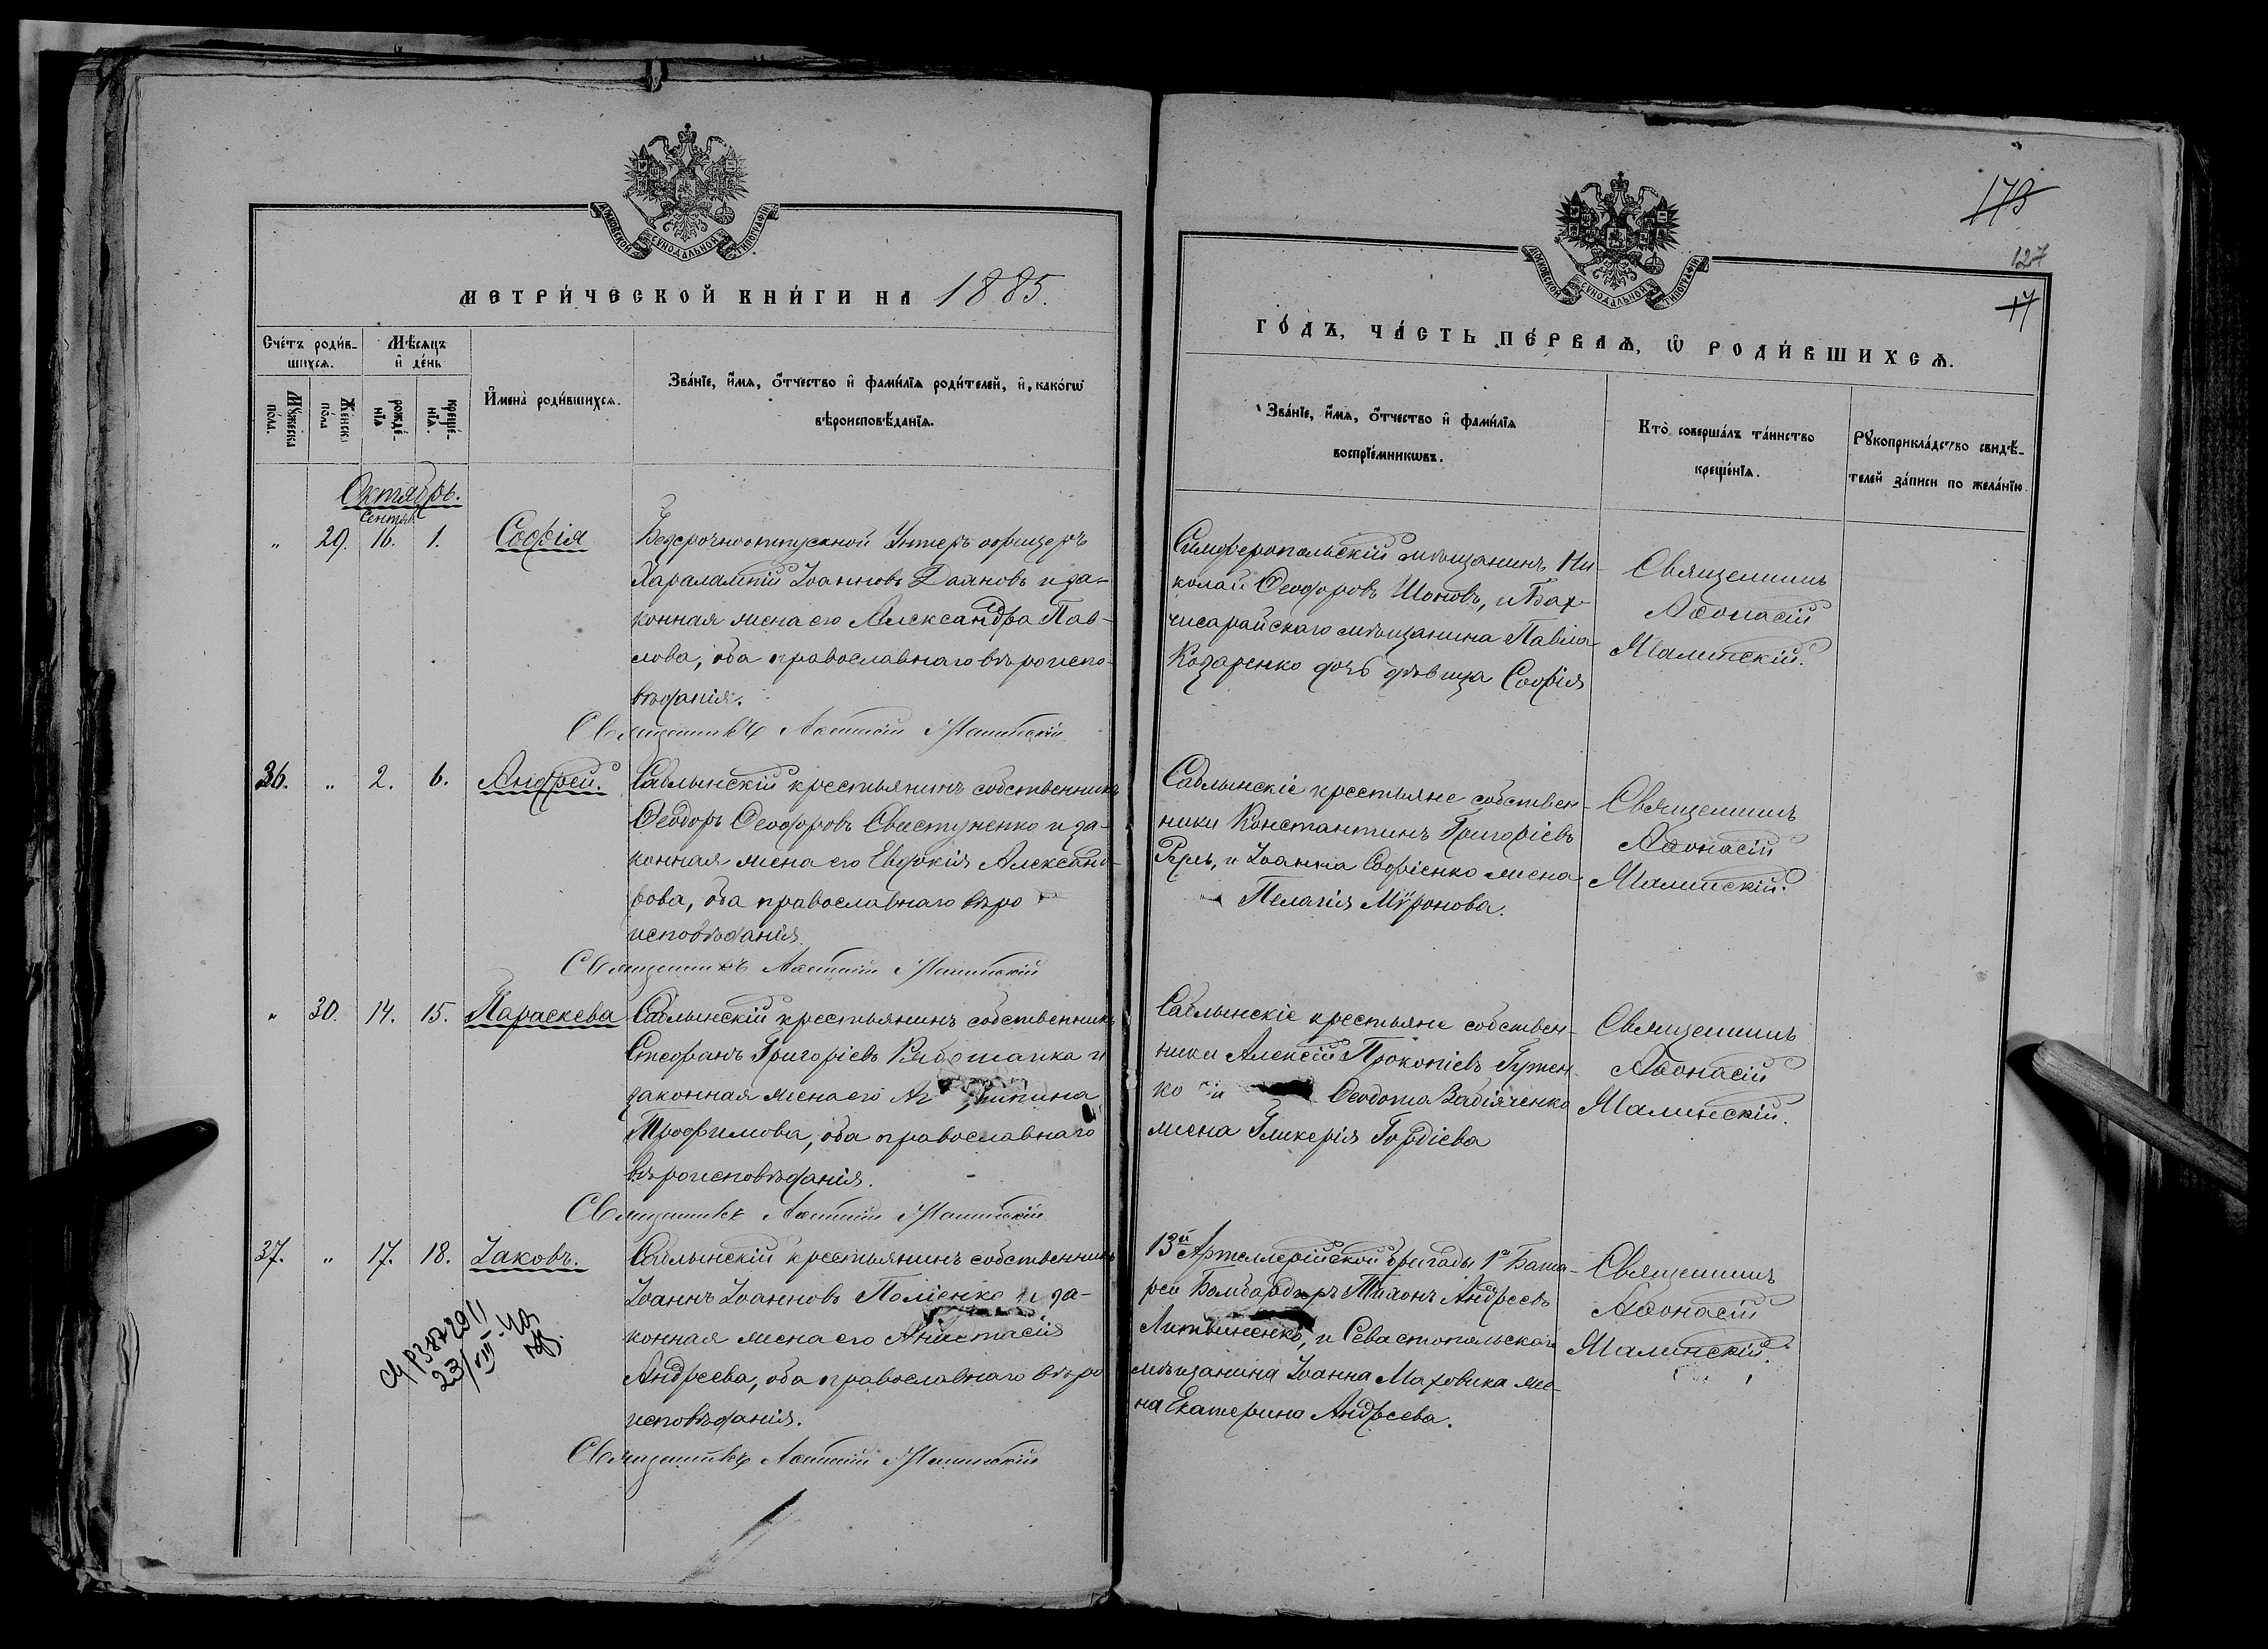 МОСКОВСКОЙ СУНОДАЛЬНОЙ ТИПОГРАФІИ
МЕТРИ́ЧЕСКОЙ КНИ́ГИ НА 1885.
Сче́тъ роди́в-
шихсѧ.
Мѣ́сѧцъ
и҆ де́нь
Мꙋ́жеска по́ла.
Же́нска по́ла
рожде́-
нїѧ
креще́-
нїѧ.
И҆мена̀ роди́вшихсѧ.
Зва́нїе, и҆́мѧ, ѻ҆́тчество и҆ фами́лїѧ роди́телей, и҆, како́гѡ
вѣроисповѣ́данїѧ.
Октябрь.
Сентяб.
" 29. 16. 1. Софія
Безсрочноотпускной Унтеръ офицеръ
Харалампій Іоанновъ Даяновъ и за-
конная жена его Александра Пав-
лова, оба православнаго вѣроиспо-
вѣданія.
Священникъ Афонасій Малинскій
36. " 2. 6. Андрей.
Саблынскій крестьянинъ собственникъ
Ѳеодоръ Ѳеодоровъ Свистуненко и за-
конная жена его Евдокія Александ-
рова, оба православнаго вѣро
исповѣданія.
Священникъ Афонасій Малинскій
" 30. 14. 15. Параскева
Саблынскій крестьянинъ собственникъ
Стефанъ Григоріевъ и
законная жена его
Трофимова, оба православнаго
вѣроисповѣданія.
Священникъ Афонасій Малинскій
37. " 17. 18. Іаковъ.
Саблынскій крестьянинъ собственникъ
Іоаннъ Іоанновъ Поліенко и за-
конная жена его Анастасія
Андреева, оба православнаго вѣро
исповѣданія.
Священникъ Афонасій Малинскій
178
127
17
МОСКОВСКОЙ СУНОДАЛЬНОЙ ТИПОГРАФІИ
ГО́ДЪ, ЧА́СТЬ ПЕ́РВАѦ, Ѡ҆ РОДИ́ВШИХСѦ.
Зва́нїе, и҆́мѧ, ѻ҆́тчество и҆ фами́лїѧ
воспрїе́мникѡвъ.
Кто̀ соверша́лъ та́инство
креще́нїѧ.
Рꙋкоприкла́дство свидѣ́-
телей за́писи по жела́нїю
Симферопольскій мѣщанинъ Ни-
колай Ѳеодоровъ Шоповъ, и Бах-
чисарайскаго мѣщанина Павла
Козаренко дочь дѣвица Софія
Священникъ
Афонасій
Малинскій.
Саблынскіе крестьяне собствен-
ники Константинъ Григоріевъ
и Іоанна Софіенко жена
Пелагія Мѵронова.
Священникъ
Афонасій
Малинскій.
Саблынскіе крестьяне собствен-
ники Алексій Прокопіевъ Гужен-
ко и Ѳеодота Вабіяченко
жена Гликерія Гордіева
Священникъ
Афонасій
Малинскій.
13й Артиллерійской бригады 1й Бата-
реи Бомбардиръ Тихонъ Андреевъ
Литвиненко, и Севастопольскаго
мѣщанина Іоанна Маховика же-
на Екатерина Андреева.
Священникъ
Афонасій
Малинскій.